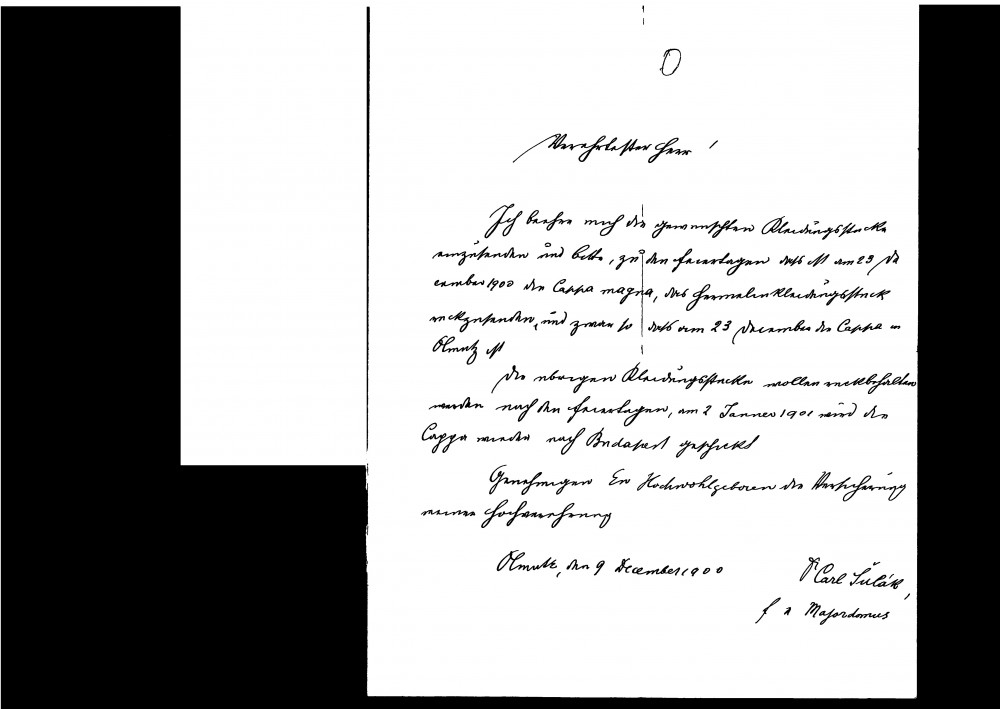 Verehrtester Herr!
Ich beehre mich die gewünschten Kleidungsstücke
einzusenden und bitte, zu den Feiertagen das ist am 23 De
cember 1900 die Cappa magna, das Hermelinkleidungsstück
rückzusenden, und zwar so dass am 23 December die Cappa in
Olmütz ist
Die übrigen Kleidungsstücke wollen rückbehalten
werden nach den Feiertagen, am 2 Jänner 1901 wird die
Cappa wieder nach Budapest geschickt
Genehmigen Eu Hochwohlgeboren die Versicherung
meiner Hochverehrung
Olmütz, den 9 December 1900
Dr Carl Šulák,
f e Majordomus